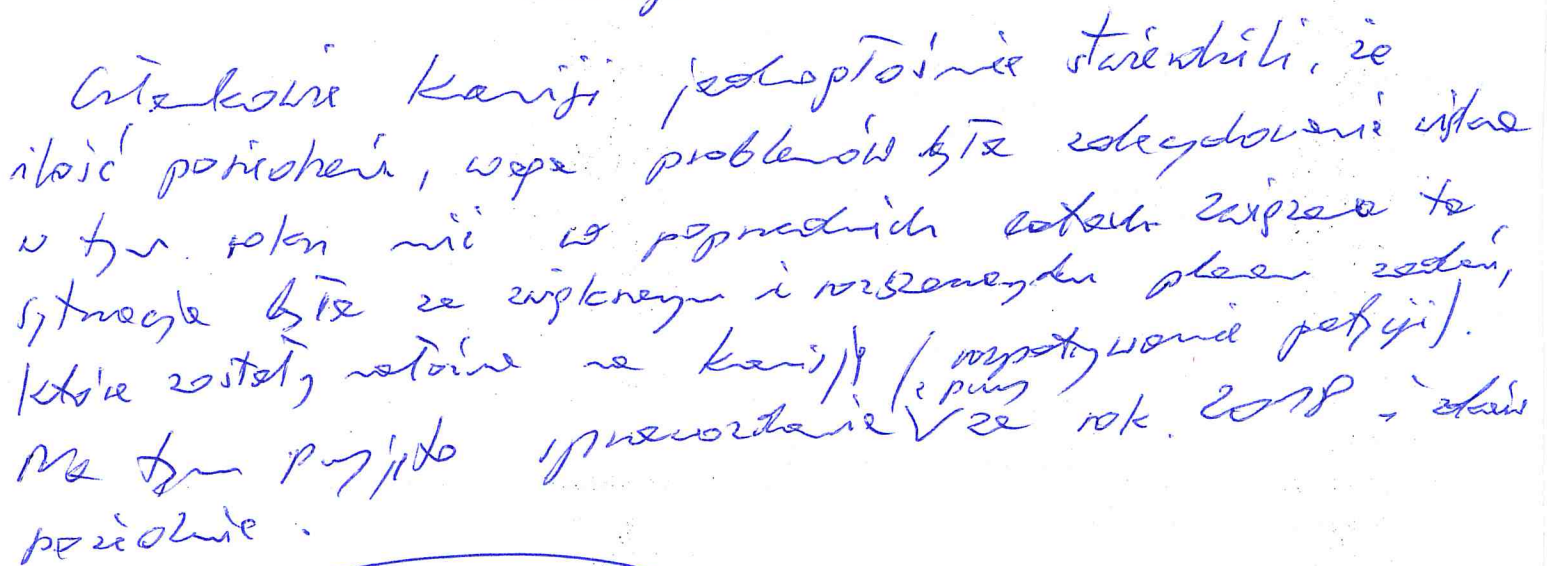 Członkowie Komisji jednogłośnie stwierdzili, że
ilość posiedzeń, waga problemów była zdecydowanie większa
w tym roku niż w poprzednich latach związana ta
sytuacja była ze zwiększonym i rozszerzonym planem zadań,
które zostały nałożone na komisję (rozpatrywanie petycji).
Na tym przyjęto sprawozdanie z pracy za rok 2018 i